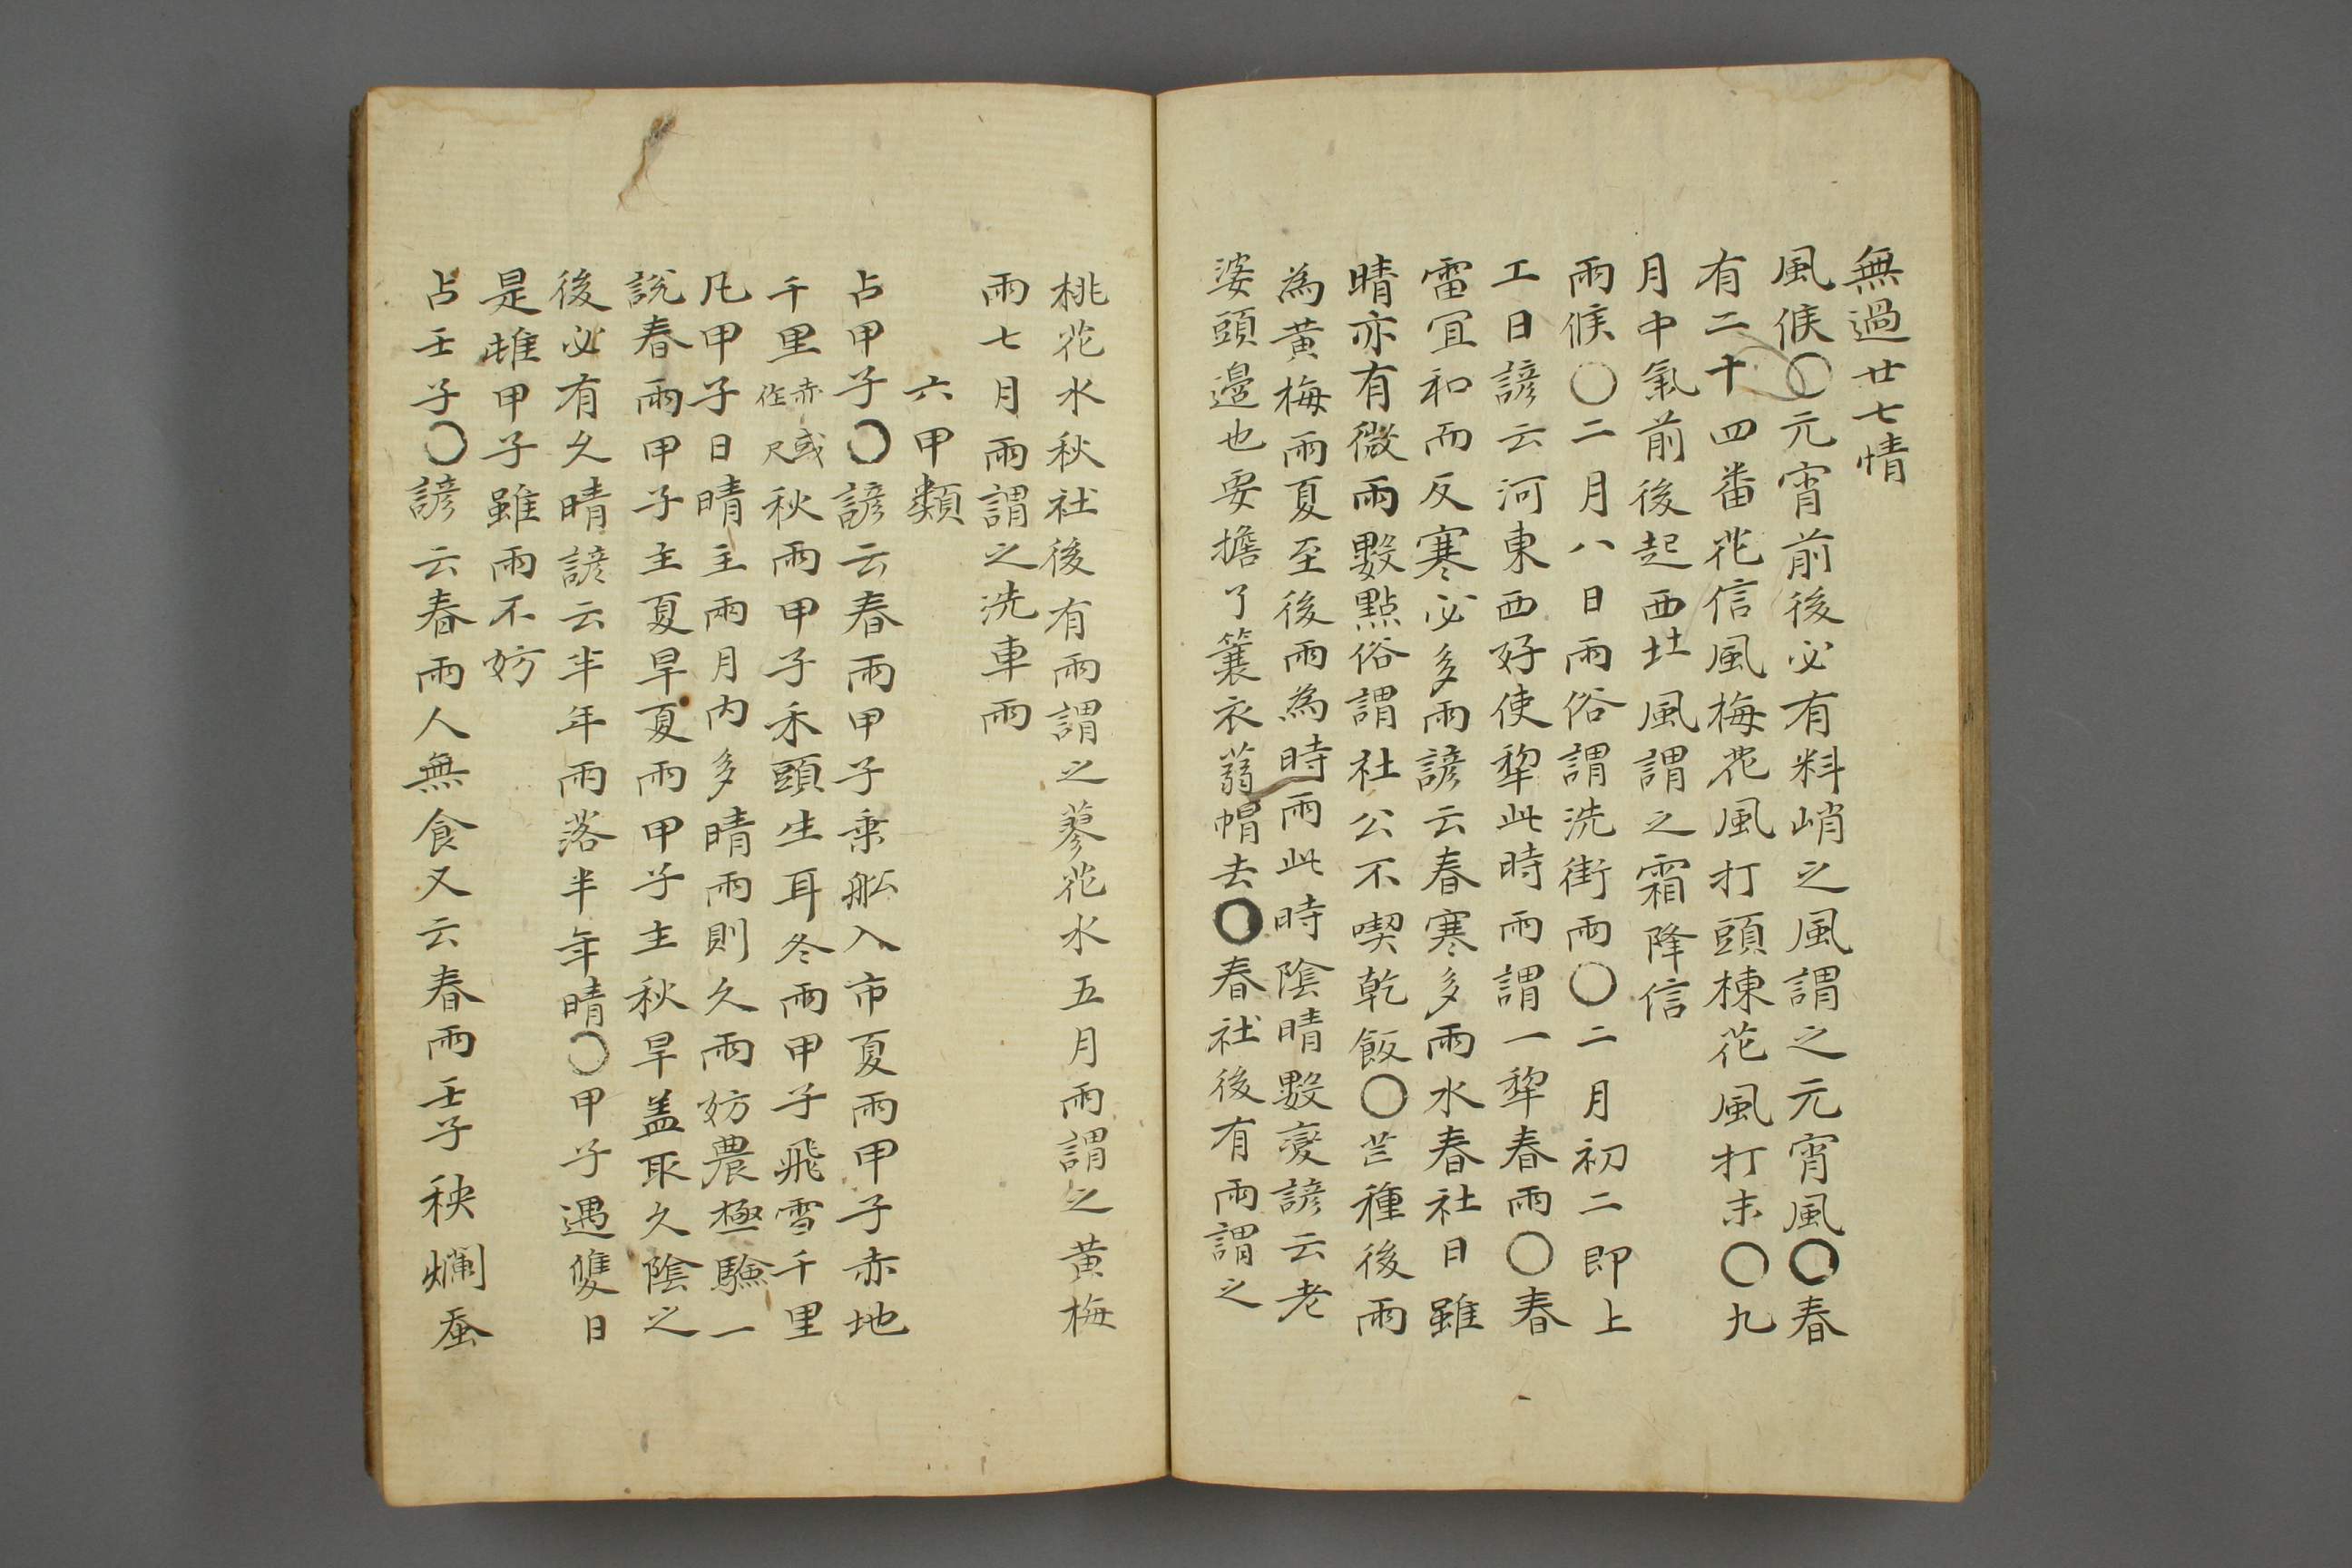 無過廿七情
風候〇元宵前後必有料峭之風謂之元宵風〇春
有二十四番花信風梅花風打頭楝花風打末〇九
月中氣前後起西北風謂之霜降信
雨候〇二月八日雨俗謂洗街雨〇二月初二即上
工日諺云河東西好使犂此時雨謂一犂春雨〇春
雷宜和而反寒必多雨諺云春寒多雨水春社日雖
晴亦有微雨數點俗謂社公不喫乾飯〇芒種後雨
為黃梅雨夏至後雨為時雨此時陰晴數變諺云老
婆頭邊也要擔了簑衣蒻帽去〇春社後有雨謂之
桃花水秋社後有雨謂之蓼花水五月雨謂之黃梅
雨七月雨謂之洗車雨
六甲類
占甲子〇諺云春雨甲子乗舩入市夏雨甲子赤地
千里赤或作尺秋雨甲子禾頭生耳冬雨甲子飛雪千里
凡甲子日晴主兩月内多晴雨則久雨妨農極驗一
説春雨甲子主夏旱夏雨甲子主秋旱盖取久陰之
後必有久晴諺云半年雨落半年晴〇甲子遇雙日
是雌甲子雖雨不妨
占壬子〇諺云春雨人無食又云春雨壬子秧爛蚕